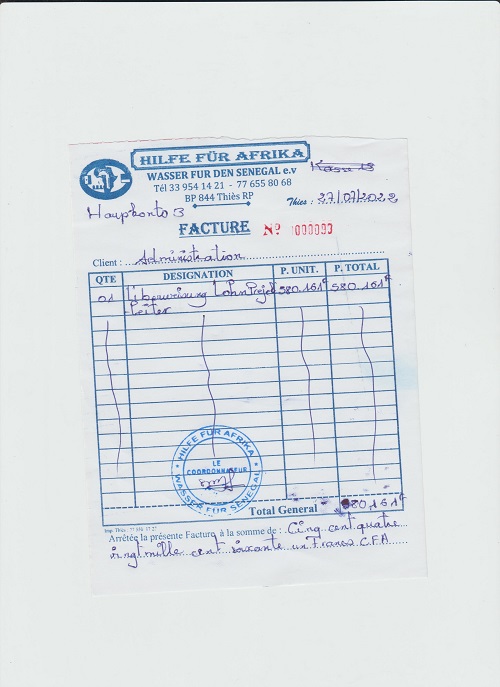 HILFE FÜR AFRIKA
WASSER FUR DEN SENEGAL e.v
Tél 33 954 14 21 - 77 655 80 68
BP 844 Thiès RP
Thies : 27/07/2022
Haupkonto 3
FACTURE Nº 000093
Client : Administration
QTE DESIGNATION P. UNIT. P. TOTAL
01 Überweisung Lohn Projekt 580.161f 580.161f
Leiter
HILFE FÜR AFRIKA
LE
COORDONNATEUR
WASSER FÜR SENEGAL
Total General 580161f
Imp. Thiès
Arrêtée la présente Facture à la somme de : Cinq cent quatre
vingt mille cent soixante un Francs CFA